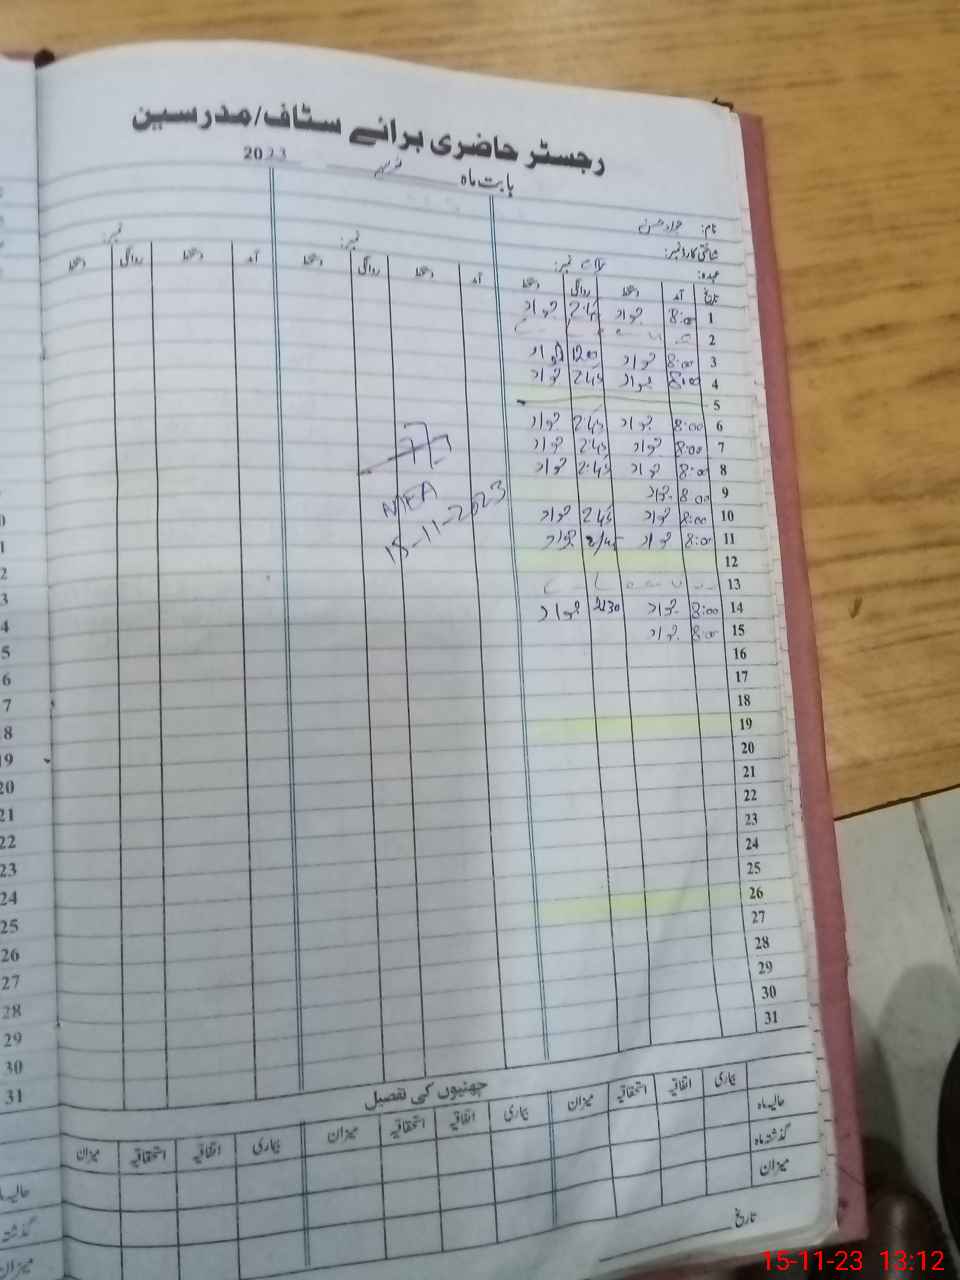 رجسٹر حاضری برائے سٹاف/مدرسین
بابت ماہ نومبر 2023
نام: جواد حسن
شناختی کارڈ نمبر:
عہدہ: نمبر: نمبر: نمبر:
تاریخ آمد دستخط روانگی دستخط آمد دستخط روانگی دستخط آمد دستخط روانگی دستخط
1 8:00 جواد 2:45 جواد
2
3 8:00 جواد 12:00 جواد
4 8:00 جواد 2:45 جواد
5
6 8:00 جواد 2:45 جواد
7 8:00 جواد 2:45 جواد
8 8:00 جواد 2:45 جواد
9 8:00 جواد
10 8:00 جواد 2:45 جواد
11 8:00 جواد 2:45 جواد
12
13
14 8:00 جواد 2:30 جواد
15 8:00 جواد
16
17
18
19
20
21
22
23
24
25
26
27
28
29
30
31
MEA
15-11-2023
چھٹیوں کی تفصیل
بیماری اتفاقیہ استحقاقیہ میزان بیماری اتفاقیہ استحقاقیہ میزان بیماری اتفاقیہ استحقاقیہ میزان
حالیہ ماہ
گذشتہ ماہ
میزان
تاریخ
15-11-23 13:12